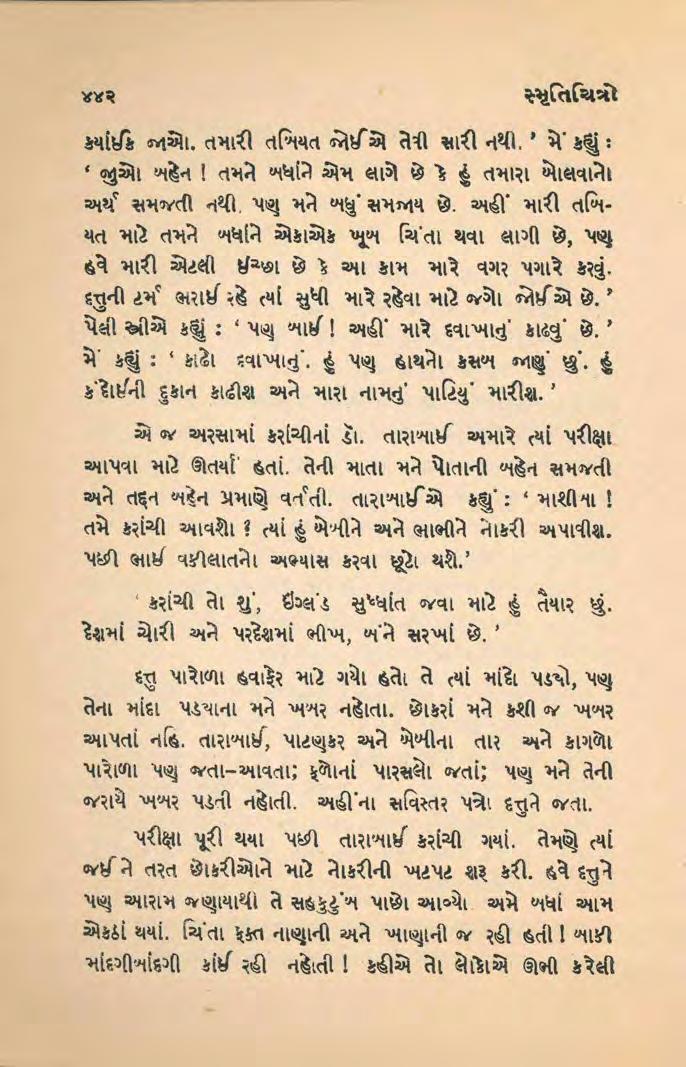 ૪૪૨ સ્મૃતિચિત્રો
ક્યાંઈક જાઓ. તમારી તબિયત જોઈએ તેવી સારી નથી. ’ મેં કહ્યું :
‘ જુઓ બહેન ! તમને બધાંને એમ લાગે છે કે હું તમારા બોલવાનો
અર્થ સમજતી નથી. પણ મને બધું સમજાય છે. અહીં મારી તબિ-
યત માટે તમને બધાંને એકાએક ખૂબ ચિંતા થવા લાગી છે, પણ
હવે મારી એટલી ઈચ્છા છે કે આ કામ મારે વગર પગારે કરવું.
દત્તુની ટર્મ ભરાઈ રહે ત્યાં સુધી મારે રહેવા માટે જગો જોઈએ છે. ’
પેલી સ્ત્રીએ કહ્યું : ‘ પણ બાઈ ! અહીં મારે દવાખાનું કાઢવું છે. ’
મેં કહ્યું : ‘ કાઢો દવાખાનું. હું પણ હાથનો કસબ જાણું છું. હું
કંદોઈની દુકાન કાઢીશ અને મારા નામનું પાટિયું મારીશ. ’
એ જ અરસામાં કરાંચીનાં ડૉ. તારાબાઈ અમારે ત્યાં પરીક્ષા
આપવા માટે ઊતર્યાં હતાં. તેની માતા મને પોતાની બહેન સમજતી
અને તદ્દન બહેન પ્રમાણે વર્તતી. તારાબાઈએ કહ્યું : ‘ માશીબા !
તમે કરાંચી આવશો ? ત્યાં હું બેબીને અને ભાભીને નોકરી અપાવીશ.
પછી ભાઈ વકીલાતનો અભ્યાસ કરવા છૂટો થશે.’
‘ કરાંચી તો શું, ઇંગ્લંડ સુધ્ધાંત જવા માટે હું તૈયાર છું.
દેશમાં ચોરી અને પરદેશમાં ભીખ, બંને સરખાં છે. ’
દત્તુ પારોળા હવાફેર માટે ગયો હતો તે ત્યાં માંદો પડ્યો, પણ
તેના માંદા પડ્યાના મને ખબર નહોતા. છોકરાં મને કશી જ ખબર
આપતાં નહિ. તારાબાઈ, પાટણકર અને બેબીના તાર અને કાગળો
પારોળા પણ જતા-આવતા; ફળોનાં પારસલો જતાં; પણ મને તેની
જરાયે ખબર પડતી નહોતી. અહીંના સવિસ્તર પત્રો દત્તુને જતા.
પરીક્ષા પૂરી થયા પછી તારાબાઈ કરાંચી ગયાં. તેમણે ત્યાં
જઈને તરત છોકરીઓને માટે નોકરીની ખટપટ શરૂ કરી. હવે દત્તુને
પણ આરામ જણાયાથી તે સહકુટુંબ પાછો આવ્યો. અમે બધાં આમ
એકઠાં થયાં. ચિંતા ફક્ત નાણાની અને ખાણાની જ રહી હતી ! બાકી
માંદગીબાંદગી કાંઈ રહી નહોતી ! કહીએ તો લોકોએ ઊભી કરેલી